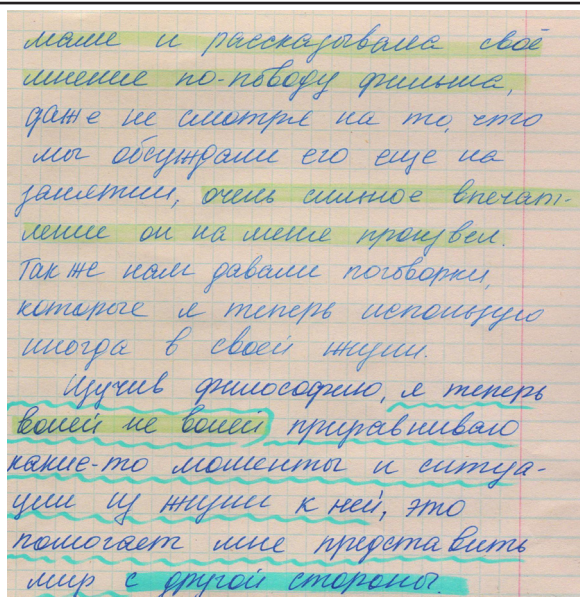 маме и рассказывала своё
мнение по-поводу фильма,
даже не смотря на то, что
мы обсуждали его еще на
занятии, очень сильное впечат-
ление он на меня произвел.
Также нам давали поговорки,
которые я теперь использую
иногда в своей жизни.
Изучив философию, я теперь
волей не волей приравниваю
какие-то моменты и ситуа-
ции из жизни к ней, это
помогает мне представить
мир с другой стороны.